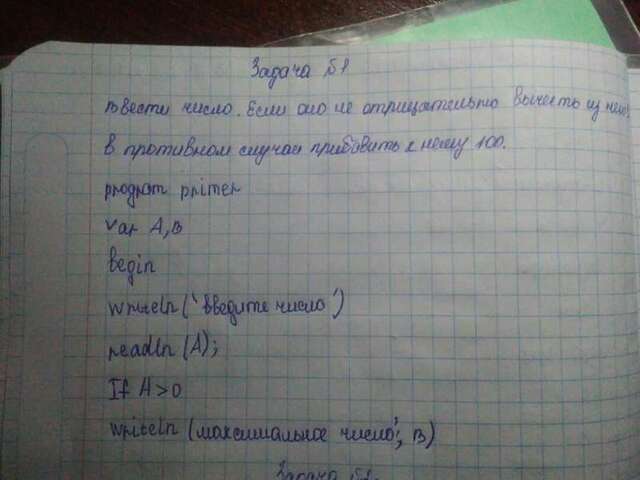 Задача №1
Ввести число. Если оно не отрицательно вычесть из него
в противном случаи прибавить к нему 100.
program primer
var A,B
begin
writeln('Введите число')
readln(A);
If A>0
writeln(максимальное число', B)
Задача №2